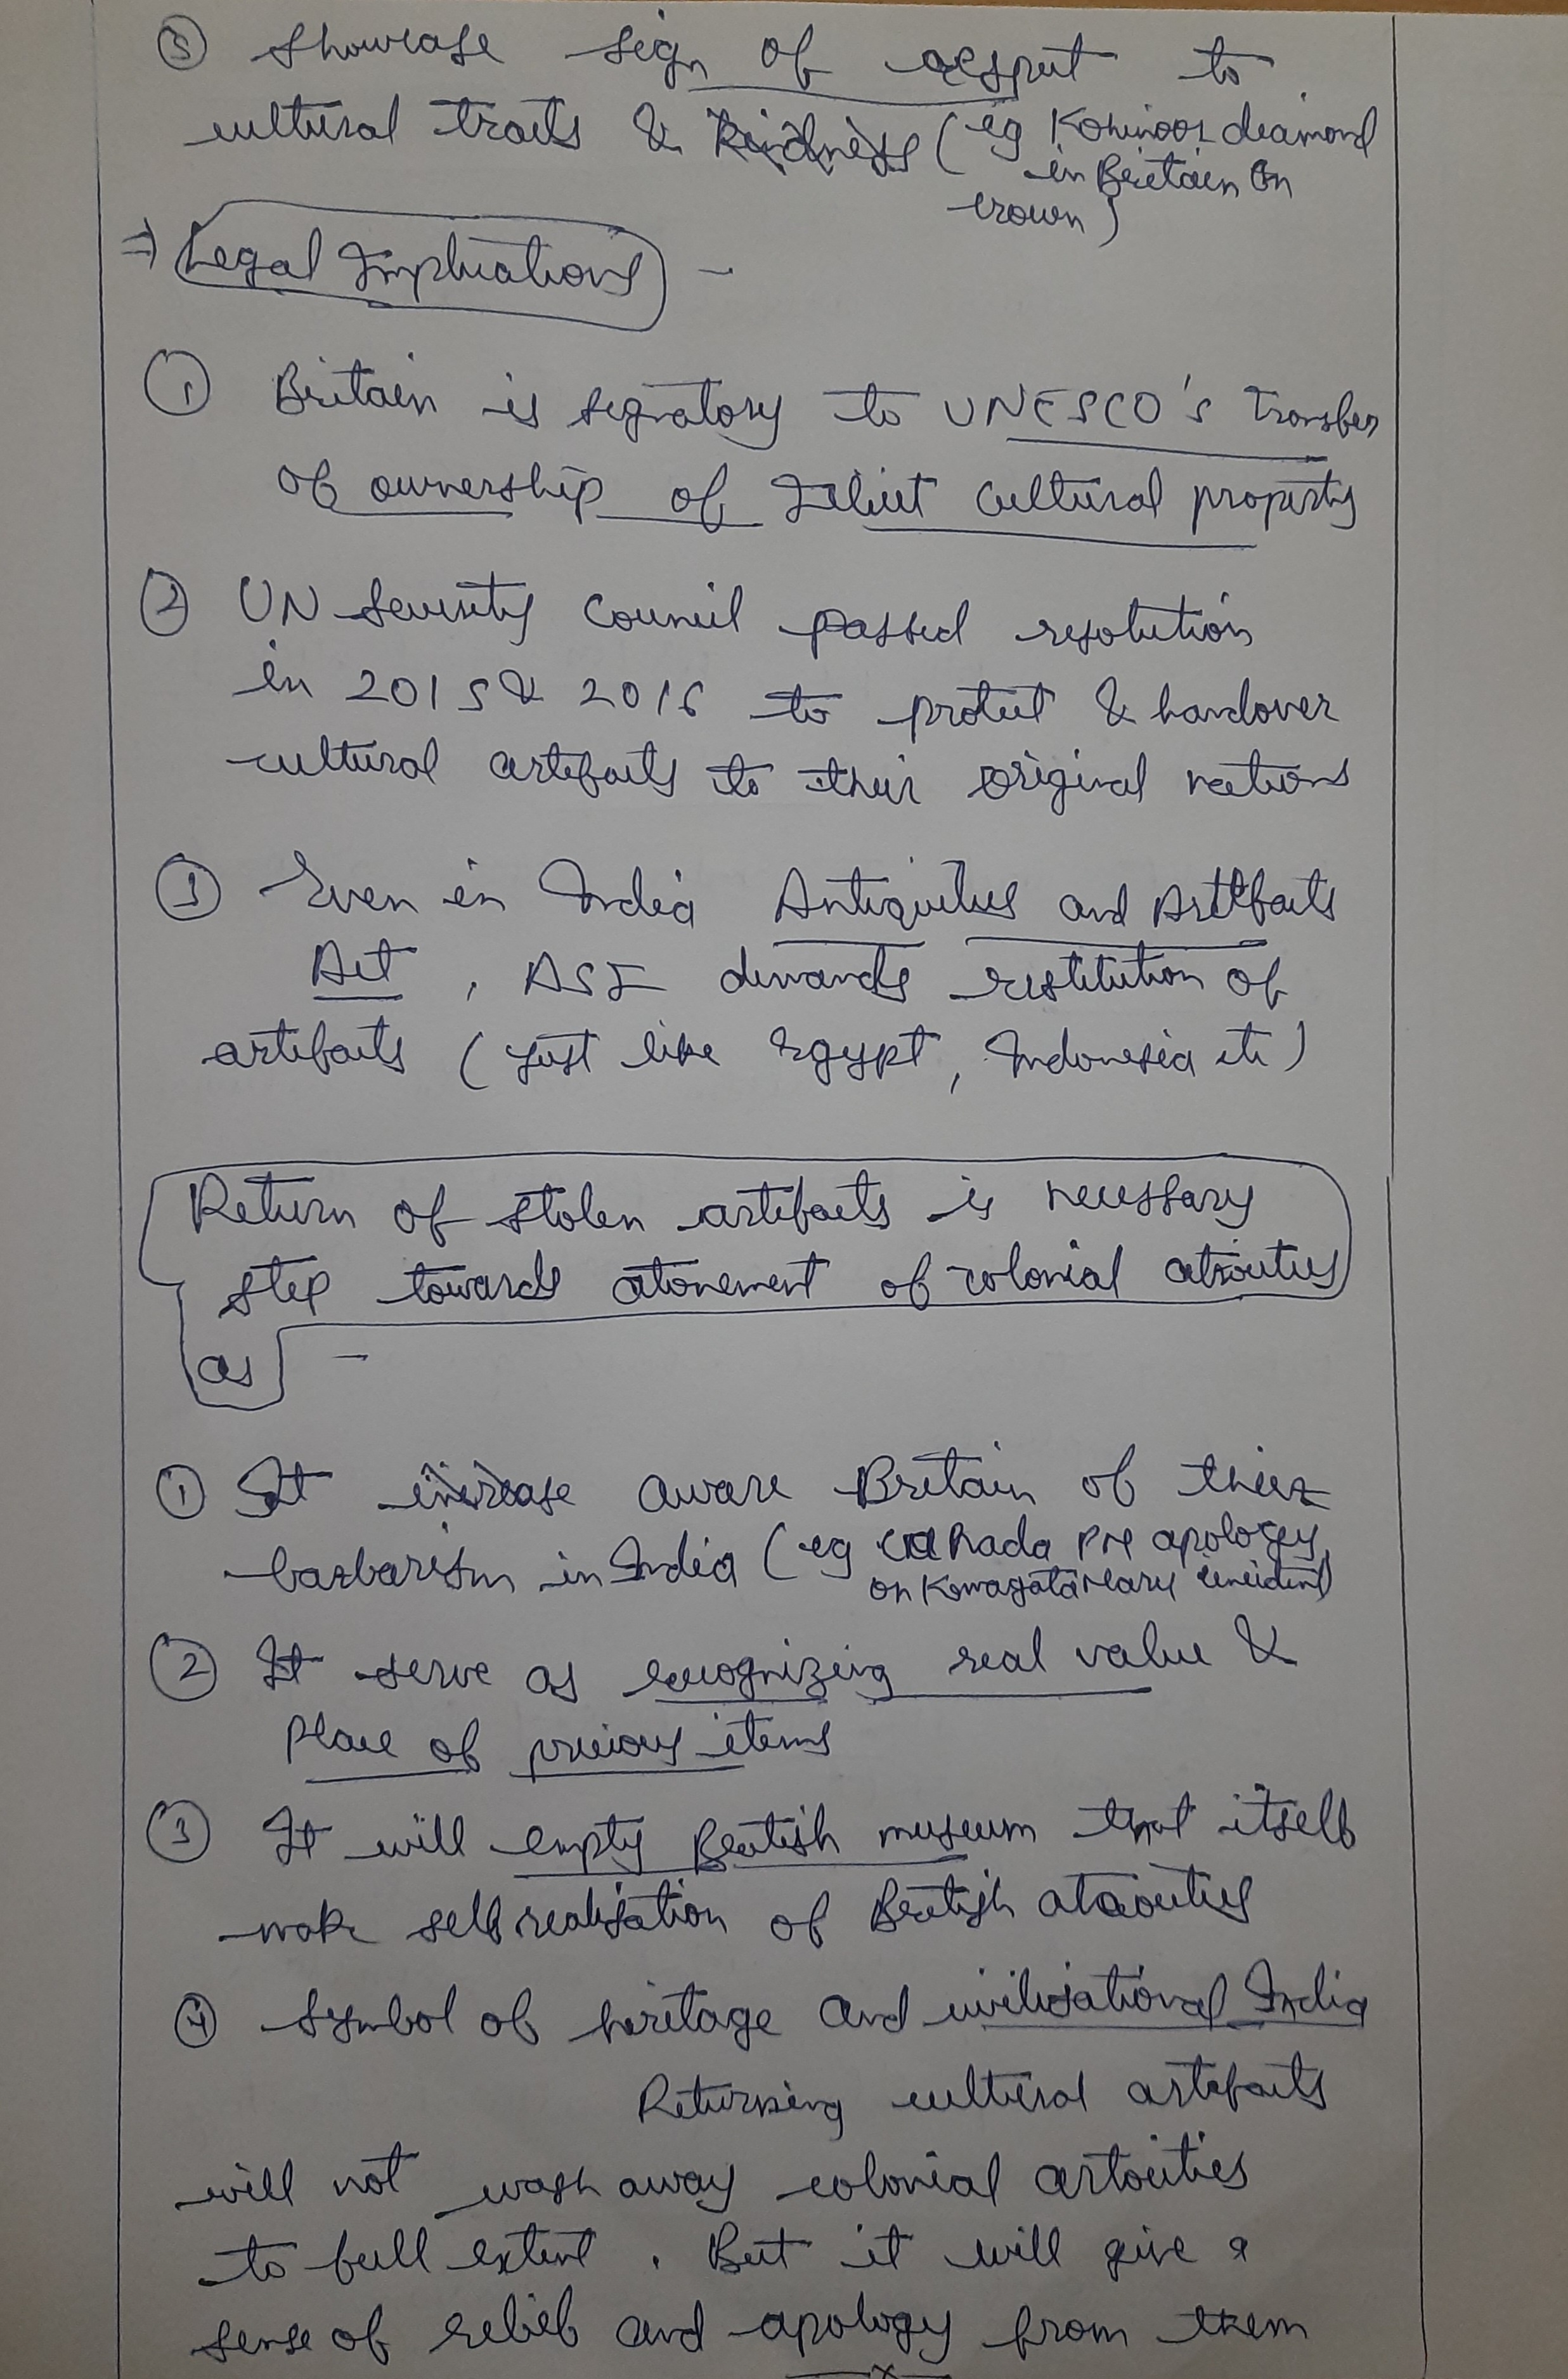 ③ Showcase sign of respect to
cultural traits & kindness (eg Kohinoor diamond
in Britain on
crown)
⇒ Legal Implications -
① Britain is signatory to UNESCO's Transfer
of ownership of Illicit cultural property
② UN Security Council passed resolution
in 2015 & 2016 to protect & handover
cultural artefacts to their original nations
③ Even in India Antiquities and Artefacts
Act, ASI demands restitution of
artifacts (just like Egypt, Indonesia etc)
Return of stolen artifacts is necessary
step towards atonement of colonial atrocities
as -
① It increase aware Britain of their
barbarism in India (eg Canada PM apology
on Komagata Maru incident)
② It serve as recognizing real value &
place of precious items
③ It will empty British museum that itself
make self realisation of British atrocities
④ Symbol of heritage and civilisational India
Returning cultural artefacts
will not wash away colonial artocities
to full extent. But it will give a
sense of relief and apology from them
x